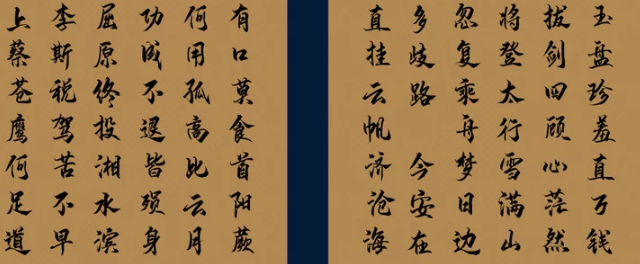 玉盘珍羞直万钱
拔剑四顾心茫然
将登太行雪满山
忽复乘舟梦日边
多歧路 今安在
直挂云帆济沧海
有口莫食首阳蕨
何用孤高比云月
功成不退皆殒身
屈原终投湘水滨
李斯税驾苦不早
上蔡苍鹰何足道